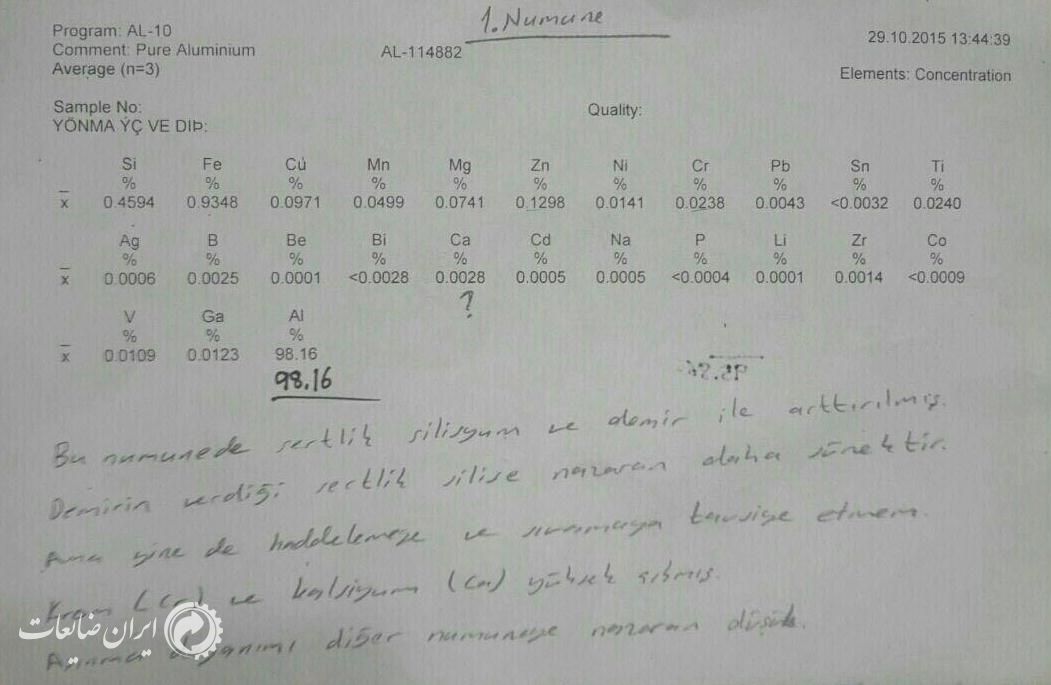 1. Numune
Program: AL-10
Comment: Pure Aluminium
Average (n=3)
AL-114882
29.10.2015 13:44:39
Elements: Concentration
Sample No:
YÖNMA ÝÇ VE DIÞ:
Quality:
Si Fe Cu Mn Mg Zn Ni Cr Pb Sn Ti
% % % % % % % % % % %
x 0.4594 0.9348 0.0971 0.0499 0.0741 0.1298 0.0141 0.0238 0.0043 <0.0032 0.0240
Ag B Be Bi Ca Cd Na P Li Zr Co
% % % % % % % % % % %
x 0.0006 0.0025 0.0001 <0.0028 0.0028 0.0005 0.0005 <0.0004 0.0001 0.0014 <0.0009
?
V Ga Al
% % %
x 0.0109 0.0123 98.16
98.16
Bu numunede sertlik silisyum ve demir ile arttırılmış.
Demirin verdiği sertlik silise nazaran daha sünektir.
Ama yine de haddelemeye ve sıvamaya tavsiye etmem.
Krom (Cr) ve kalsiyum (Ca) yüksek çıkmış.
Aşınma dayanımı diğer numuneye nazaran düşük.
ایران ضایعات